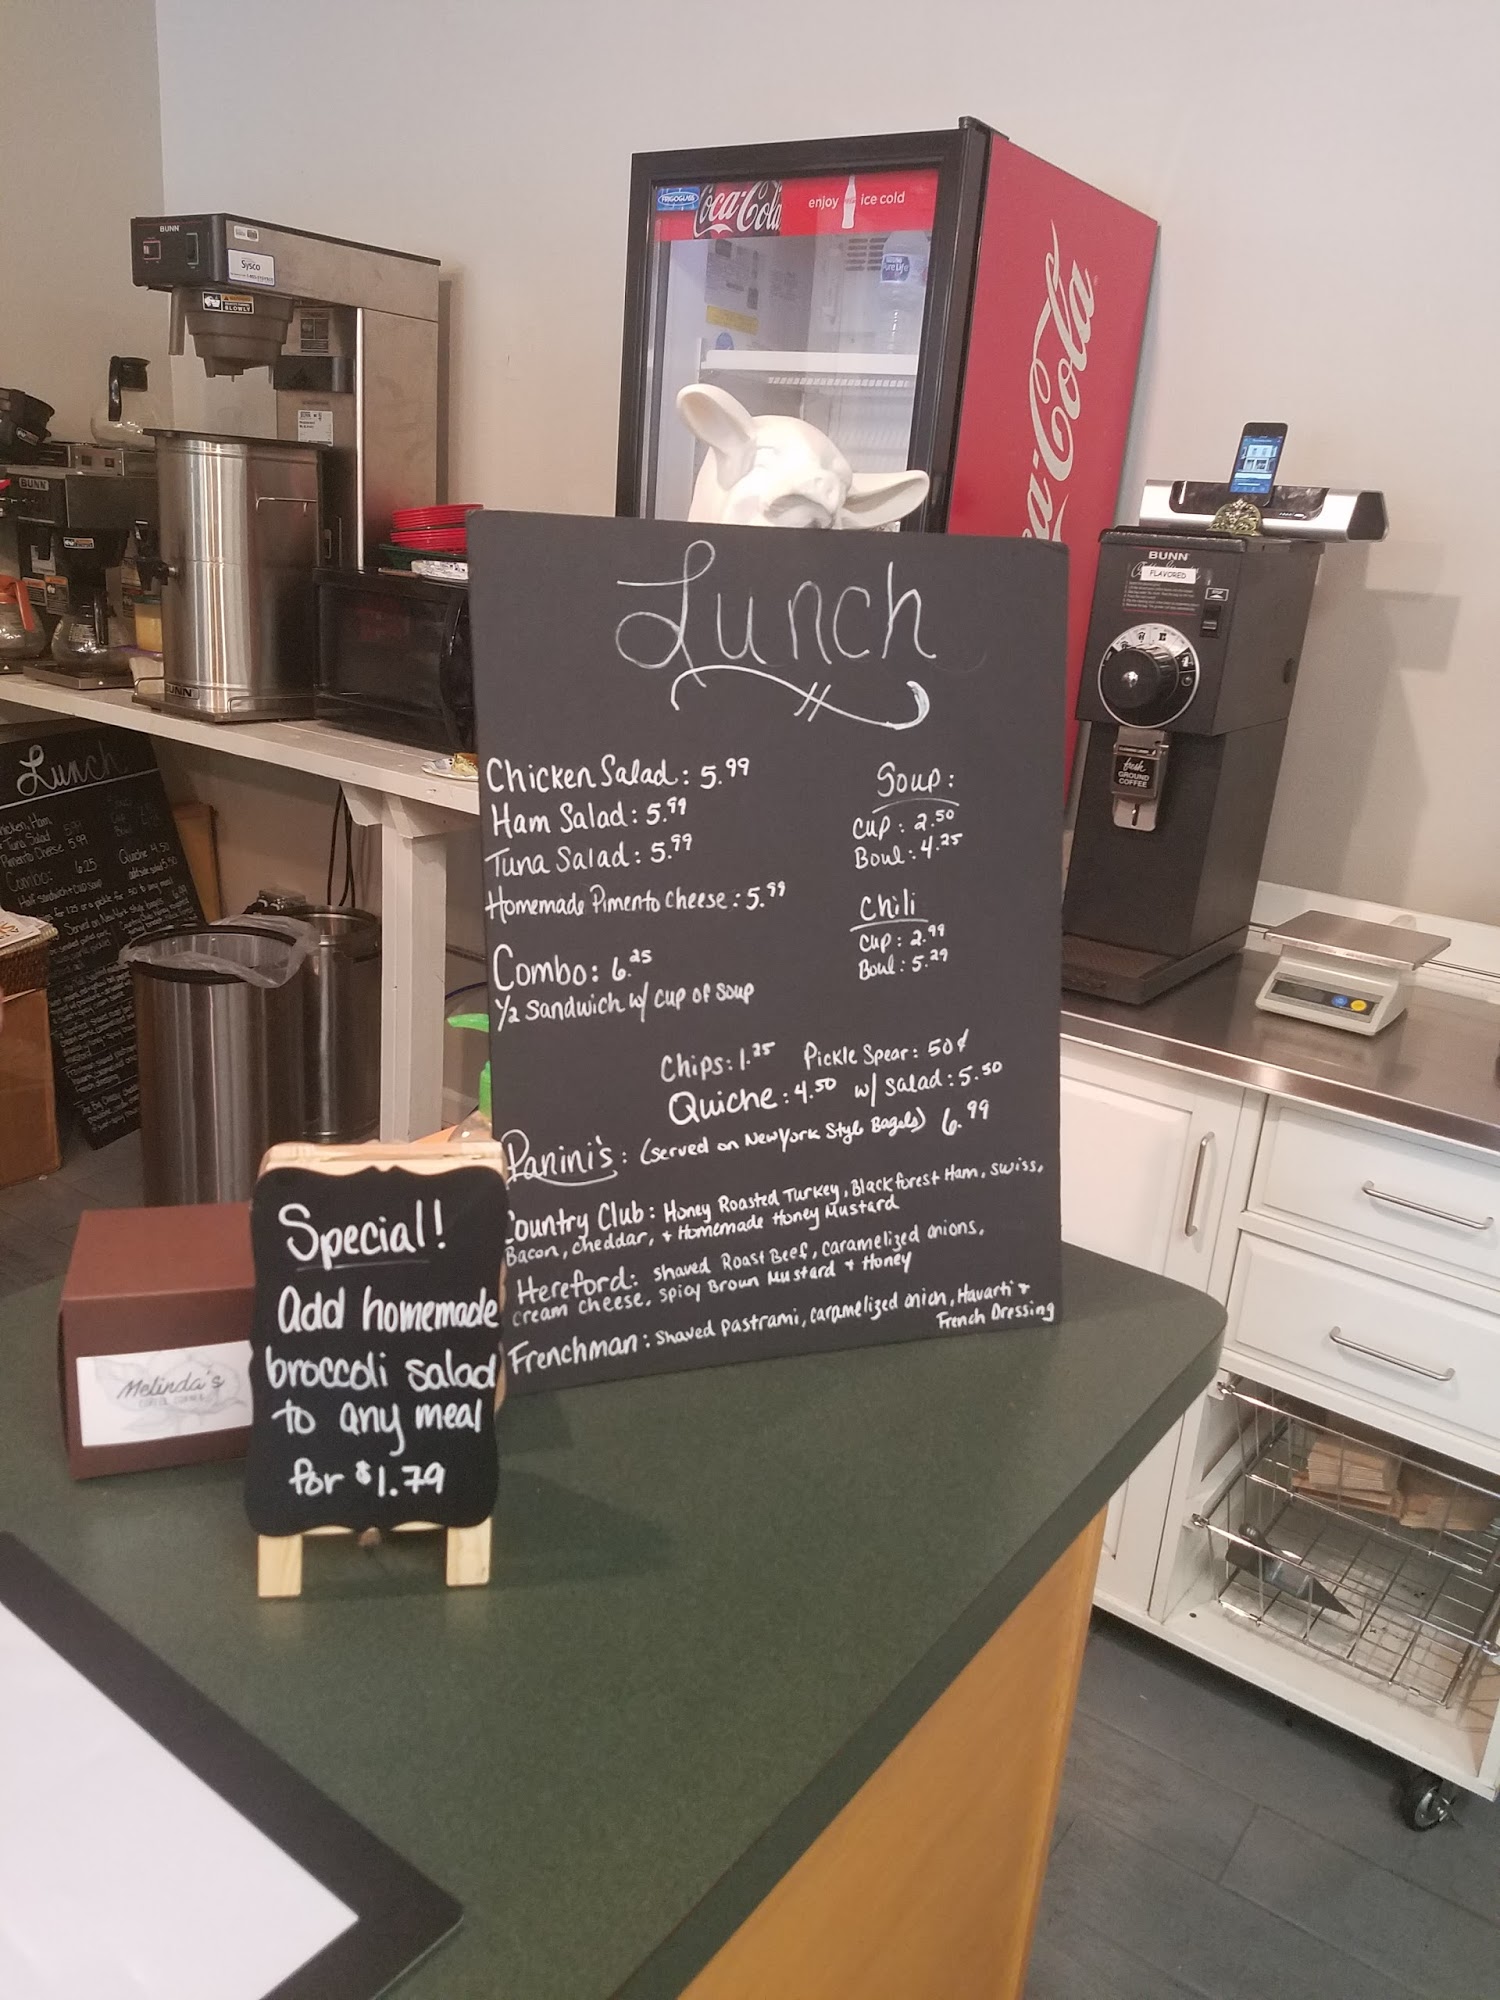 BUNN
Sysco
BUNN
BUNN
FRIGOGLASS
Coca-Cola
enjoy ice cold
Pure Life
Coca-Cola
BUNN
FLAVORED
fresh
GROUND
COFFEE
Lunch
Chicken Salad: 5.99
Ham Salad: 5.99
Tuna Salad: 5.99
Homemade Pimento Cheese: 5.99
Combo: 6.25
1/2 Sandwich w/ cup of soup
Soup:
Cup: 2.50
Bowl: 4.25
Chili
Cup: 2.99
Bowl: 5.29
Chips: 1.25 Pickle Spear: 50¢
Quiche: 4.50 w/ salad: 5.50
Panini's: (served on New York Style Bagels) 6.99
Country Club: Honey Roasted Turkey, Blackforest Ham, swiss,
Bacon, cheddar, + Homemade Honey Mustard
Hereford: shaved Roast Beef, caramelized onions,
cream cheese, spicy Brown Mustard + Honey
Frenchman: shaved Pastrami, caramelized onion, Havarti +
French Dressing
Special!
Add homemade
broccoli salad
to any meal
for $1.79
Melinda's
Lunch
Tuna Salad 5.99
Pimento Cheese 5.99
Combo: 6.25
Quiche 4.50